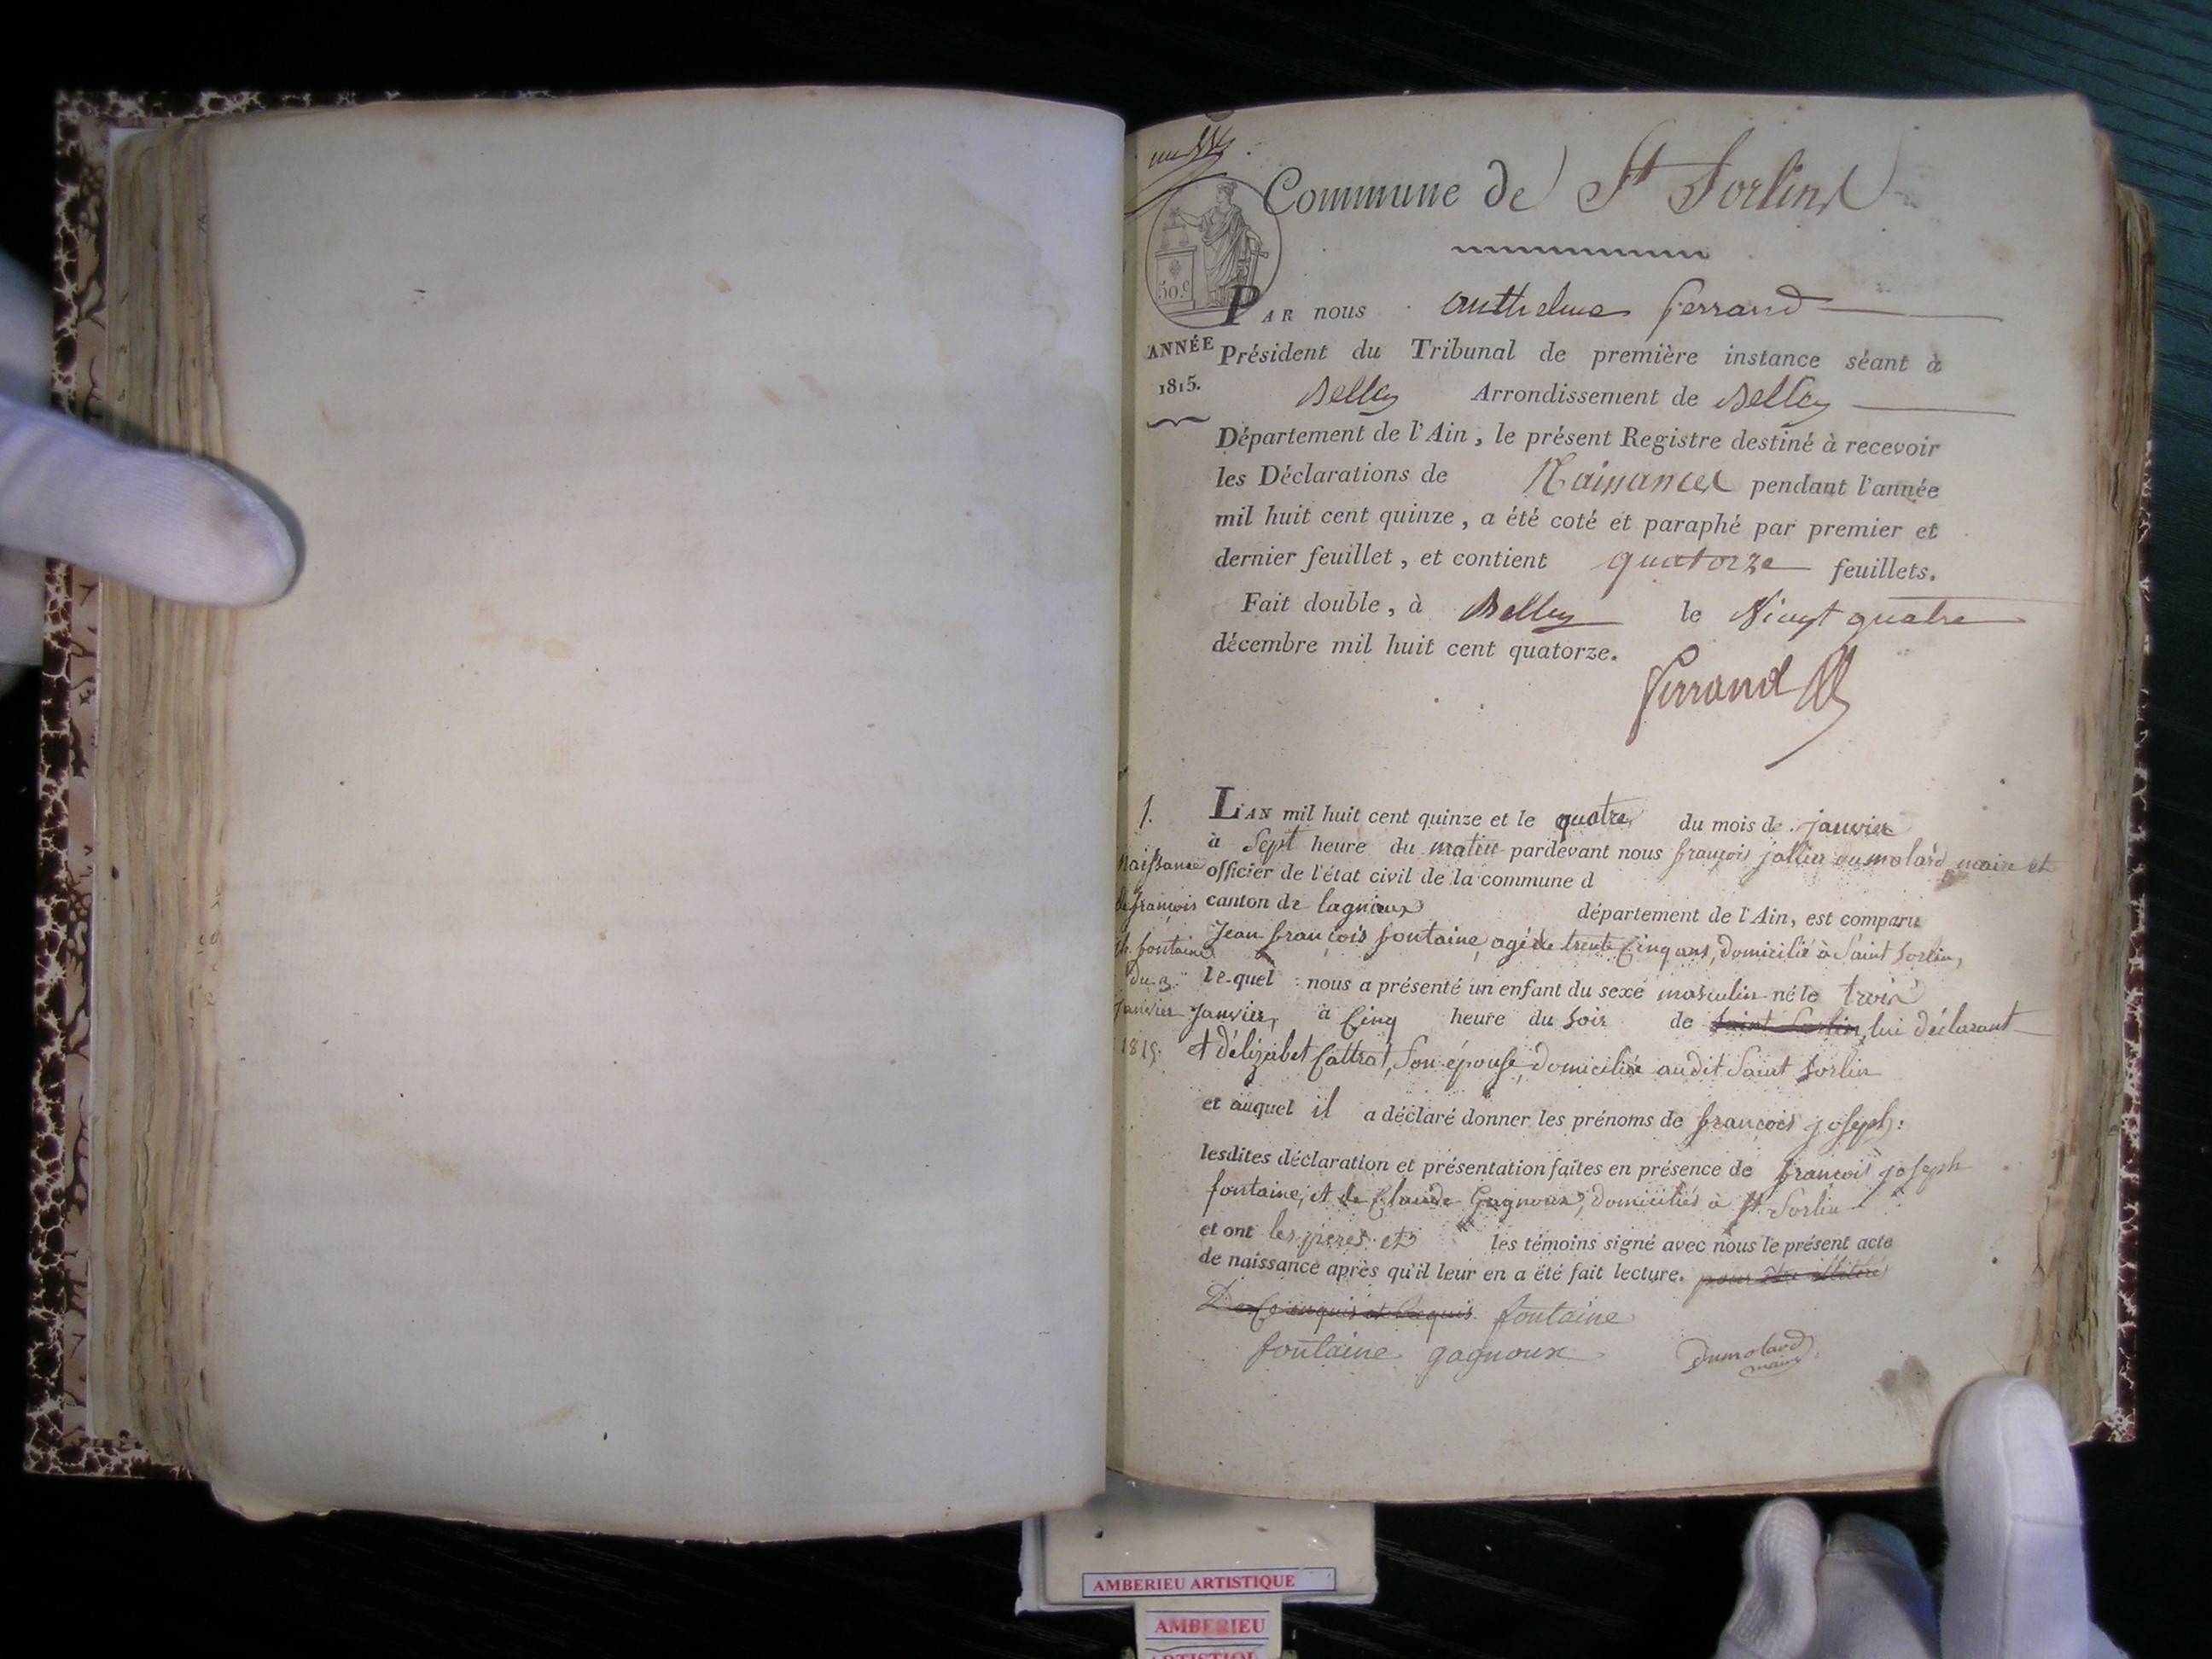 Commune de St Sorlin
50.c
PAR nous Anthelme ferrand
ANNÉE
1815.
Président du Tribunal de première instance séant à
Belley Arrondissement de Belley
Département de l'Ain, le présent Registre destiné à recevoir
les Déclarations de Naissances pendant l'année
mil huit cent quinze, a été coté et paraphé par premier et
dernier feuillet, et contient quatorze feuillets.
Fait double, à Belley le Vingt quatre
décembre mil huit cent quatorze.
ferrand
1.
Naissance
de françois
jh. fontaine
du 3
janvier
1815.
L'AN mil huit cent quinze et le quatre du mois de janvier
à Sept heure du matin pardevant nous françois jullien dumolard, maire et
officier de l'état civil de la commune d
canton de lagnieux département de l'Ain, est comparu
Jean françois fontaine, agé de trente Cinq ans, domicilié à Saint Sorlin,
lequel nous a présenté un enfant du sexe masculin né le trois
janvier, à Cinq heure du soir de Saint Sorlin, lui déclarant
et d'élizabet Cattrat, son épouse, domiciliée audit Saint Sorlin
et auquel il a déclaré donner les prénoms de françois joseph:
lesdites déclaration et présentation faites en présence de françois joseph
fontaine, et de Claude Gagnoux, domiciliés à St Sorlin
et ont les pères et les témoins signé avec nous le présent acte
de naissance après qu'il leur en a été fait lecture. pour être illitéré
De Ce enquis et Requis. fontaine
fontaine gagnoux Dumolard
maire
AMBERIEU ARTISTIQUE
AMBERIEU
ARTISTIQUE